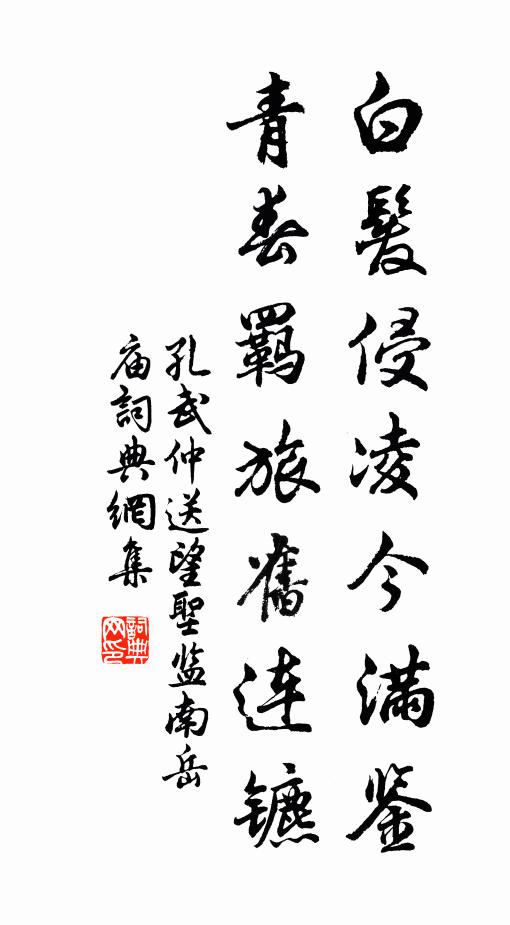 白髮侵凌今滿鉴
青春羈旅舊连镳
孔武仲送望聖监南岳
庙詞典網集
詞典
网印